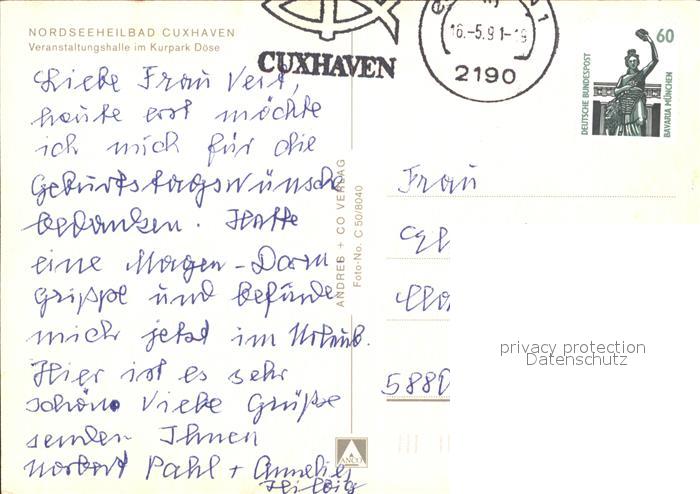 NORDSEEHEILBAD CUXHAVEN
Veranstaltungshalle im Kurpark Döse
CUXHAVEN
16.-5.91-19
2190
60
DEUTSCHE BUNDESPOST
BAVARIA MÜNCHEN
Liebe Frau Veit,
heute erst möchte
ich mich für die
Geburtstagswünsche
bedanken. Hatte
eine Magen-Darm
Grippe und befinde
mich jetzt im Urlaub.
Hier ist es sehr
schön. Viele Grüße
senden Ihnen
Norbert Pahl + Annelies
ANDRES + CO VERLAG
Foto-No. C 50/8040
ANCO
Frau
5880
privacy protection
Datenschutz